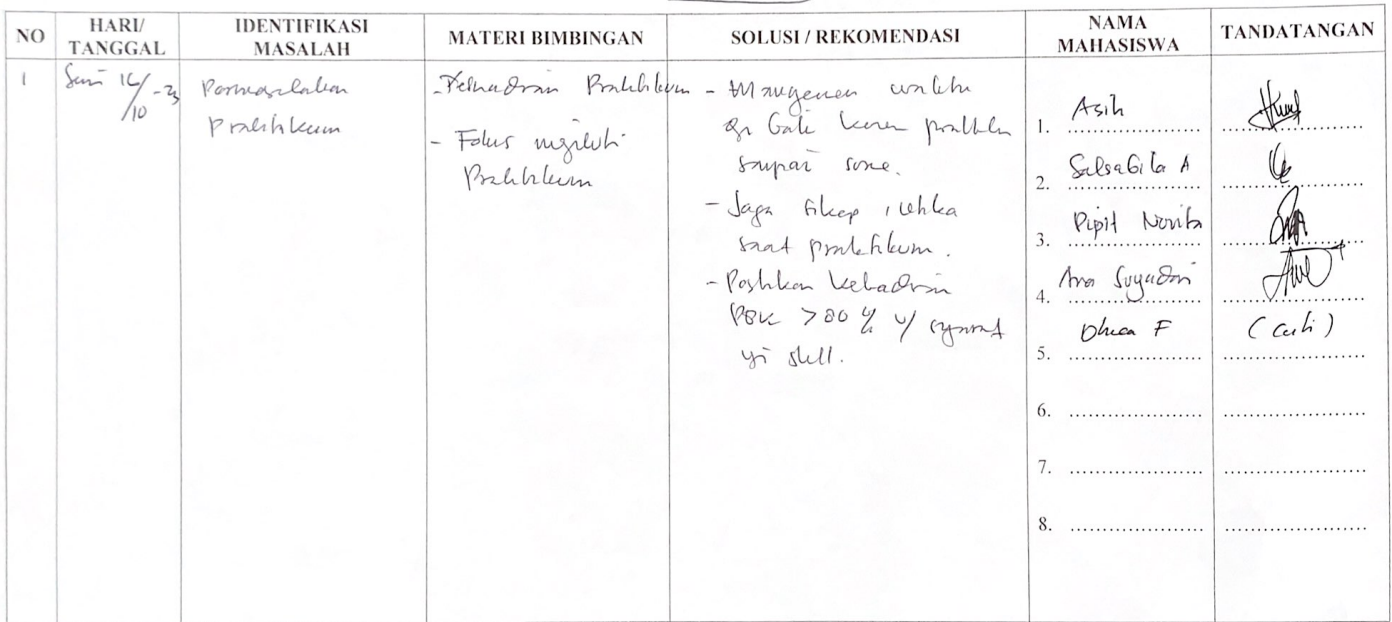 NO
HARI/
TANGGAL
IDENTIFIKASI
MASALAH
MATERI BIMBINGAN
SOLUSI / REKOMENDASI
NAMA
MAHASISWA
TANDATANGAN
1
16/10 - 23
Permasalahan
Praktikum
- Kehadiran Praktikum
- Fokus mengikuti
Praktikum
- Manajemen waktu
baik karena
sampai sore.
- Jaga sikap, etika
saat praktikum.
- Pastikan kehadiran
PBK >80 %
skill.
1. Asih
2. Salsabila A
3. Pipit Novita
4. Suyadin
5. F
(Cuti)
6.
7.
8.